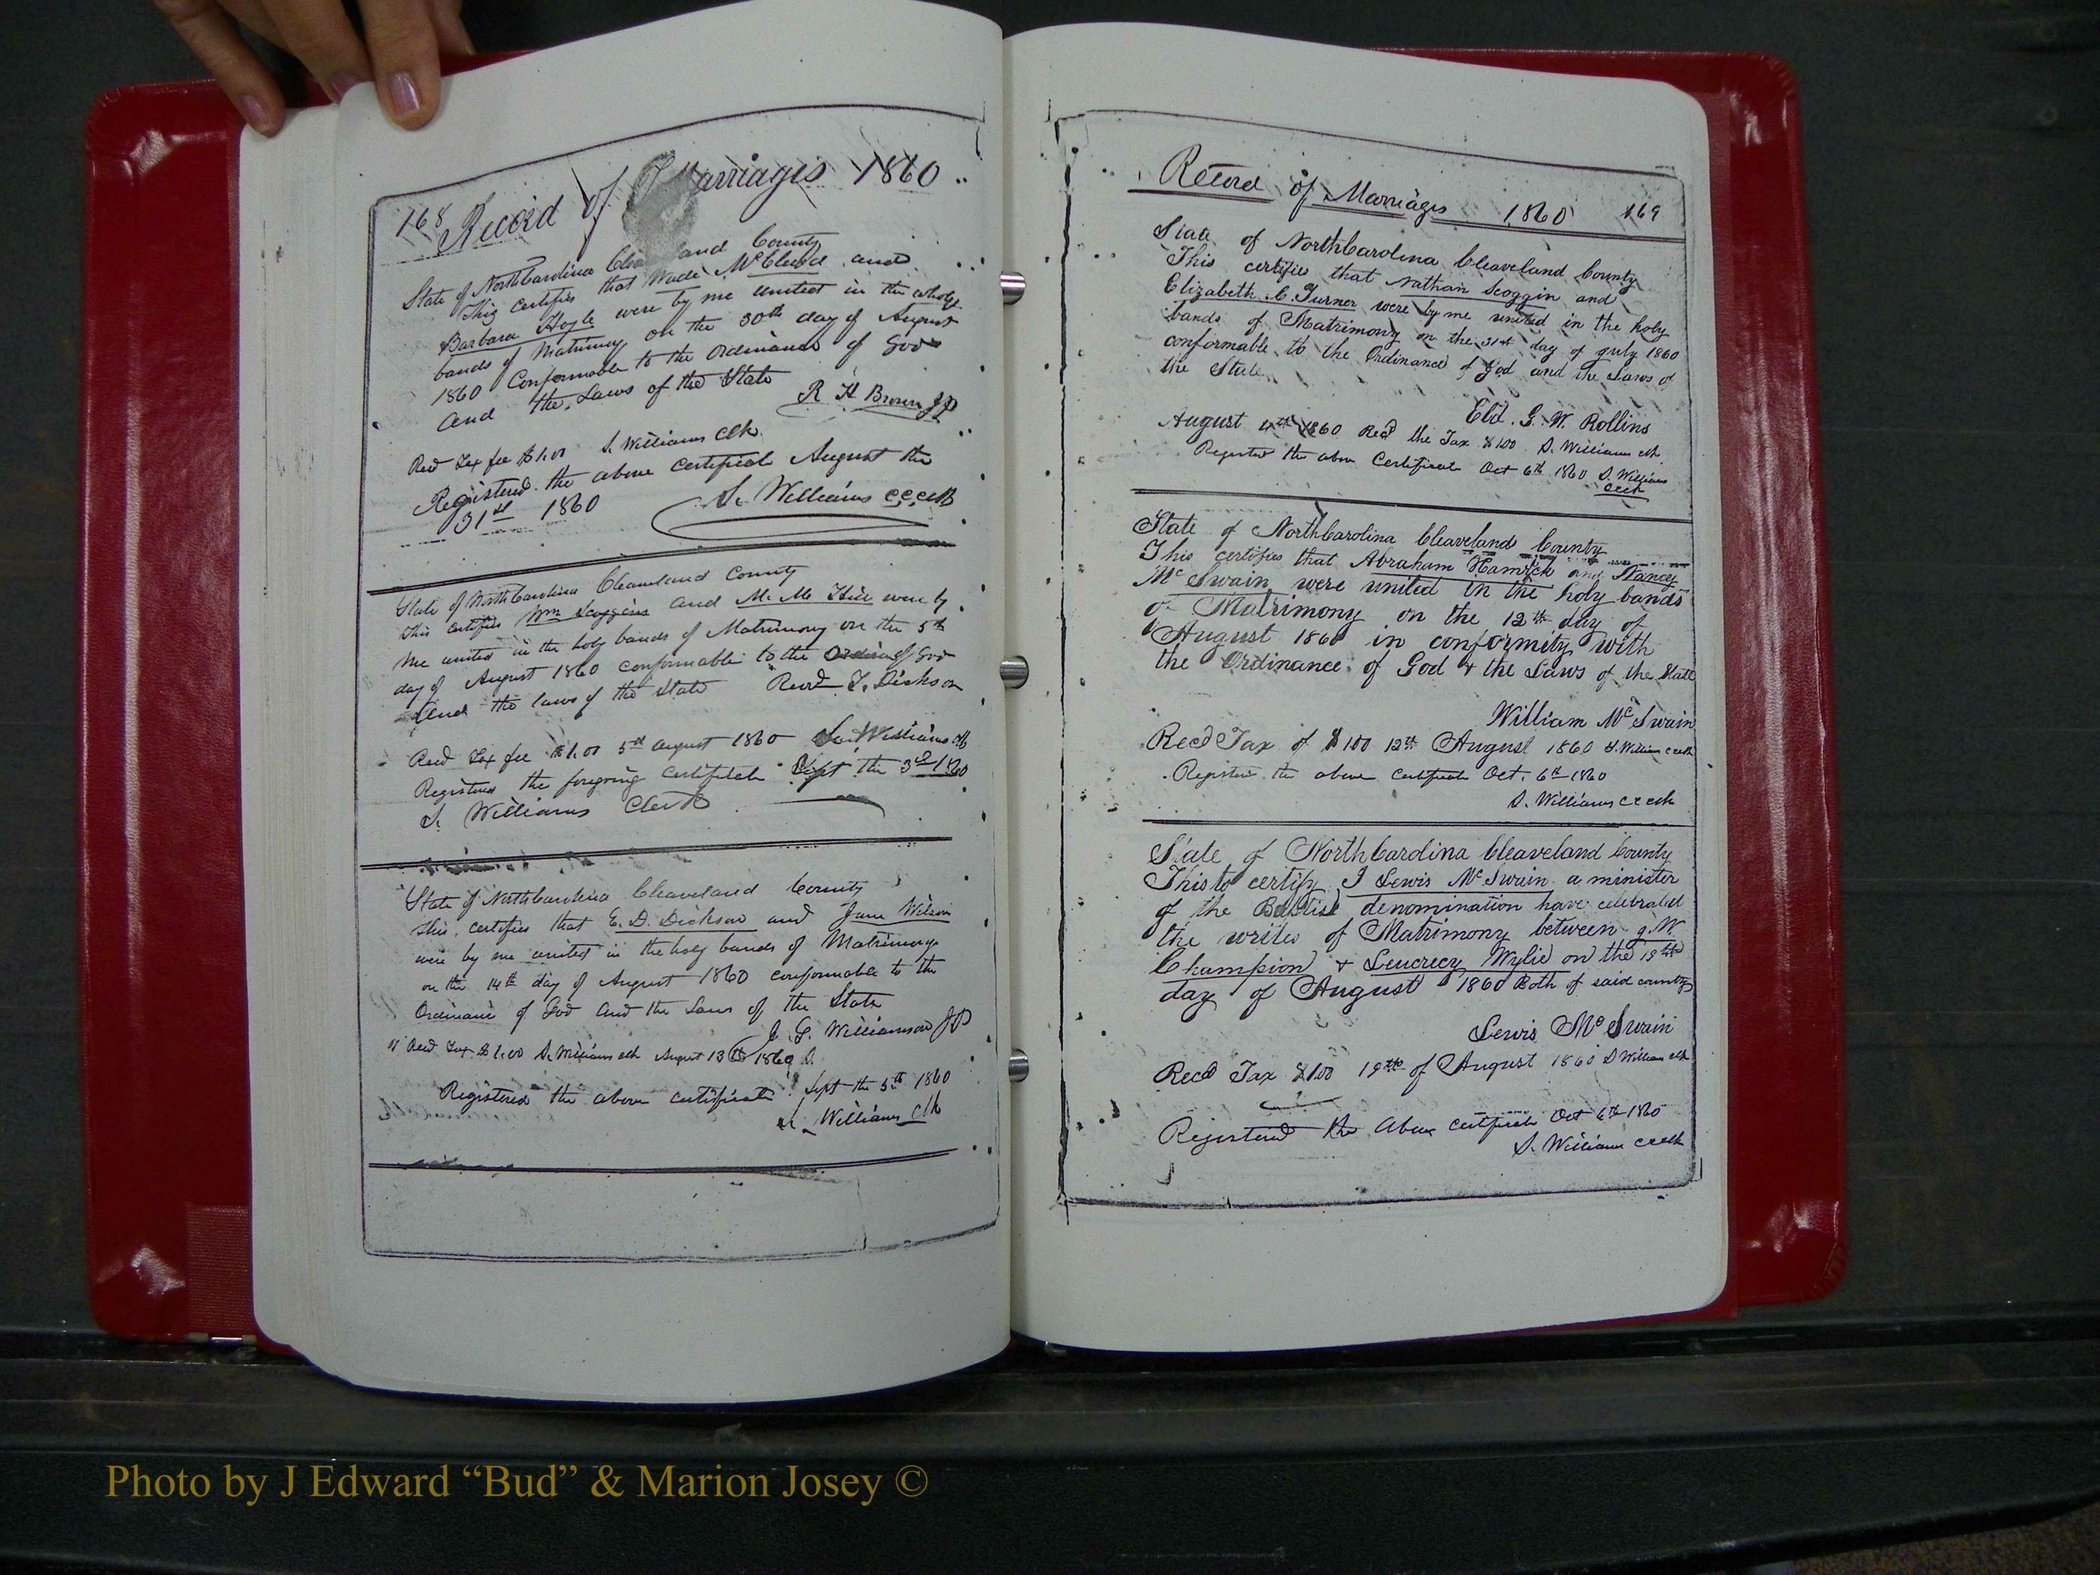 168 Record of Marriages 1860
State of North Carolina Cleaveland County
This certifies that Wade McClurd and
Barbara Hoyle were by me united in the wholy
bands of Matrimony on the 30th day of August
1860 Conformable to the Ordinance of God
and the Laws of the State
R H Brown JP
Recd Tax fee $1.00 S. Williams Clk
Registered the above certificate August the
31st 1860 S. Williams CCClk
State of North Carolina Cleaveland County
This certifies Wm Scoggins and M. M. Hill were by
me united in the holy bands of Matrimony on the 5th
day of August 1860 conformable to the of God
and the laws of the State Revd T. Dickson
Recd Tax fee $1.00 5th August 1860 S. Williams Clk
Registered the foregoing certificate Sept the 3d 1860
S. Williams Clerk
State of North Carolina Cleaveland County
This certifies that E. D. Dickson and Jane Wilson
were by me united in the holy bands of Matrimony
on the 14th day of August 1860 conformable to the
Ordinance of God and the Laws of the State
J. G. Williamson JP
Recd Tax $1.00 S. Williams clk August 13th 1860
Registered the above certificate Sept the 5th 1860
S. Williams Clk
Record of Marriages 1860 169
State of North Carolina Cleaveland County
This certifies that Nathan Scoggin and
Elizabeth C. Turner were by me united in the holy
bands of Matrimony on the 31st day of July 1860
conformable to the Ordinance of God and the Laws of
the State
Eld. G. W. Rollins
August 4th 1860 Recd the Tax $1.00 S. Williams clk
Registered the above Certificate Oct 6th 1860 S. Williams
CCClk
State of North Carolina Cleaveland County
This certifies that Abraham Hamrick and Nancy
McSwain were united in the holy bands
of Matrimony on the 12th day of
August 1860 in conformity with
the Ordinance of God & the Laws of the State
William McSwain
Recd Tax of $1.00 12th August 1860 S. William CCClk
Registered the above certificate Oct. 6th 1860
S. Williams CCClk
State of North Carolina Cleaveland County
This to certify I Lewis McSwain a minister
of the Baptist denomination have celebrated
the writes of Matrimony between G. W.
Champion & Leucrecy Wylie on the 19th
day of August 1860 Both of said county
Lewis McSwain
Recd Tax $1.00 19th of August 1860 S William clk
Registered the above certificate Oct 6th 1860
S. William CCClk
Photo by J Edward “Bud” & Marion Josey ©